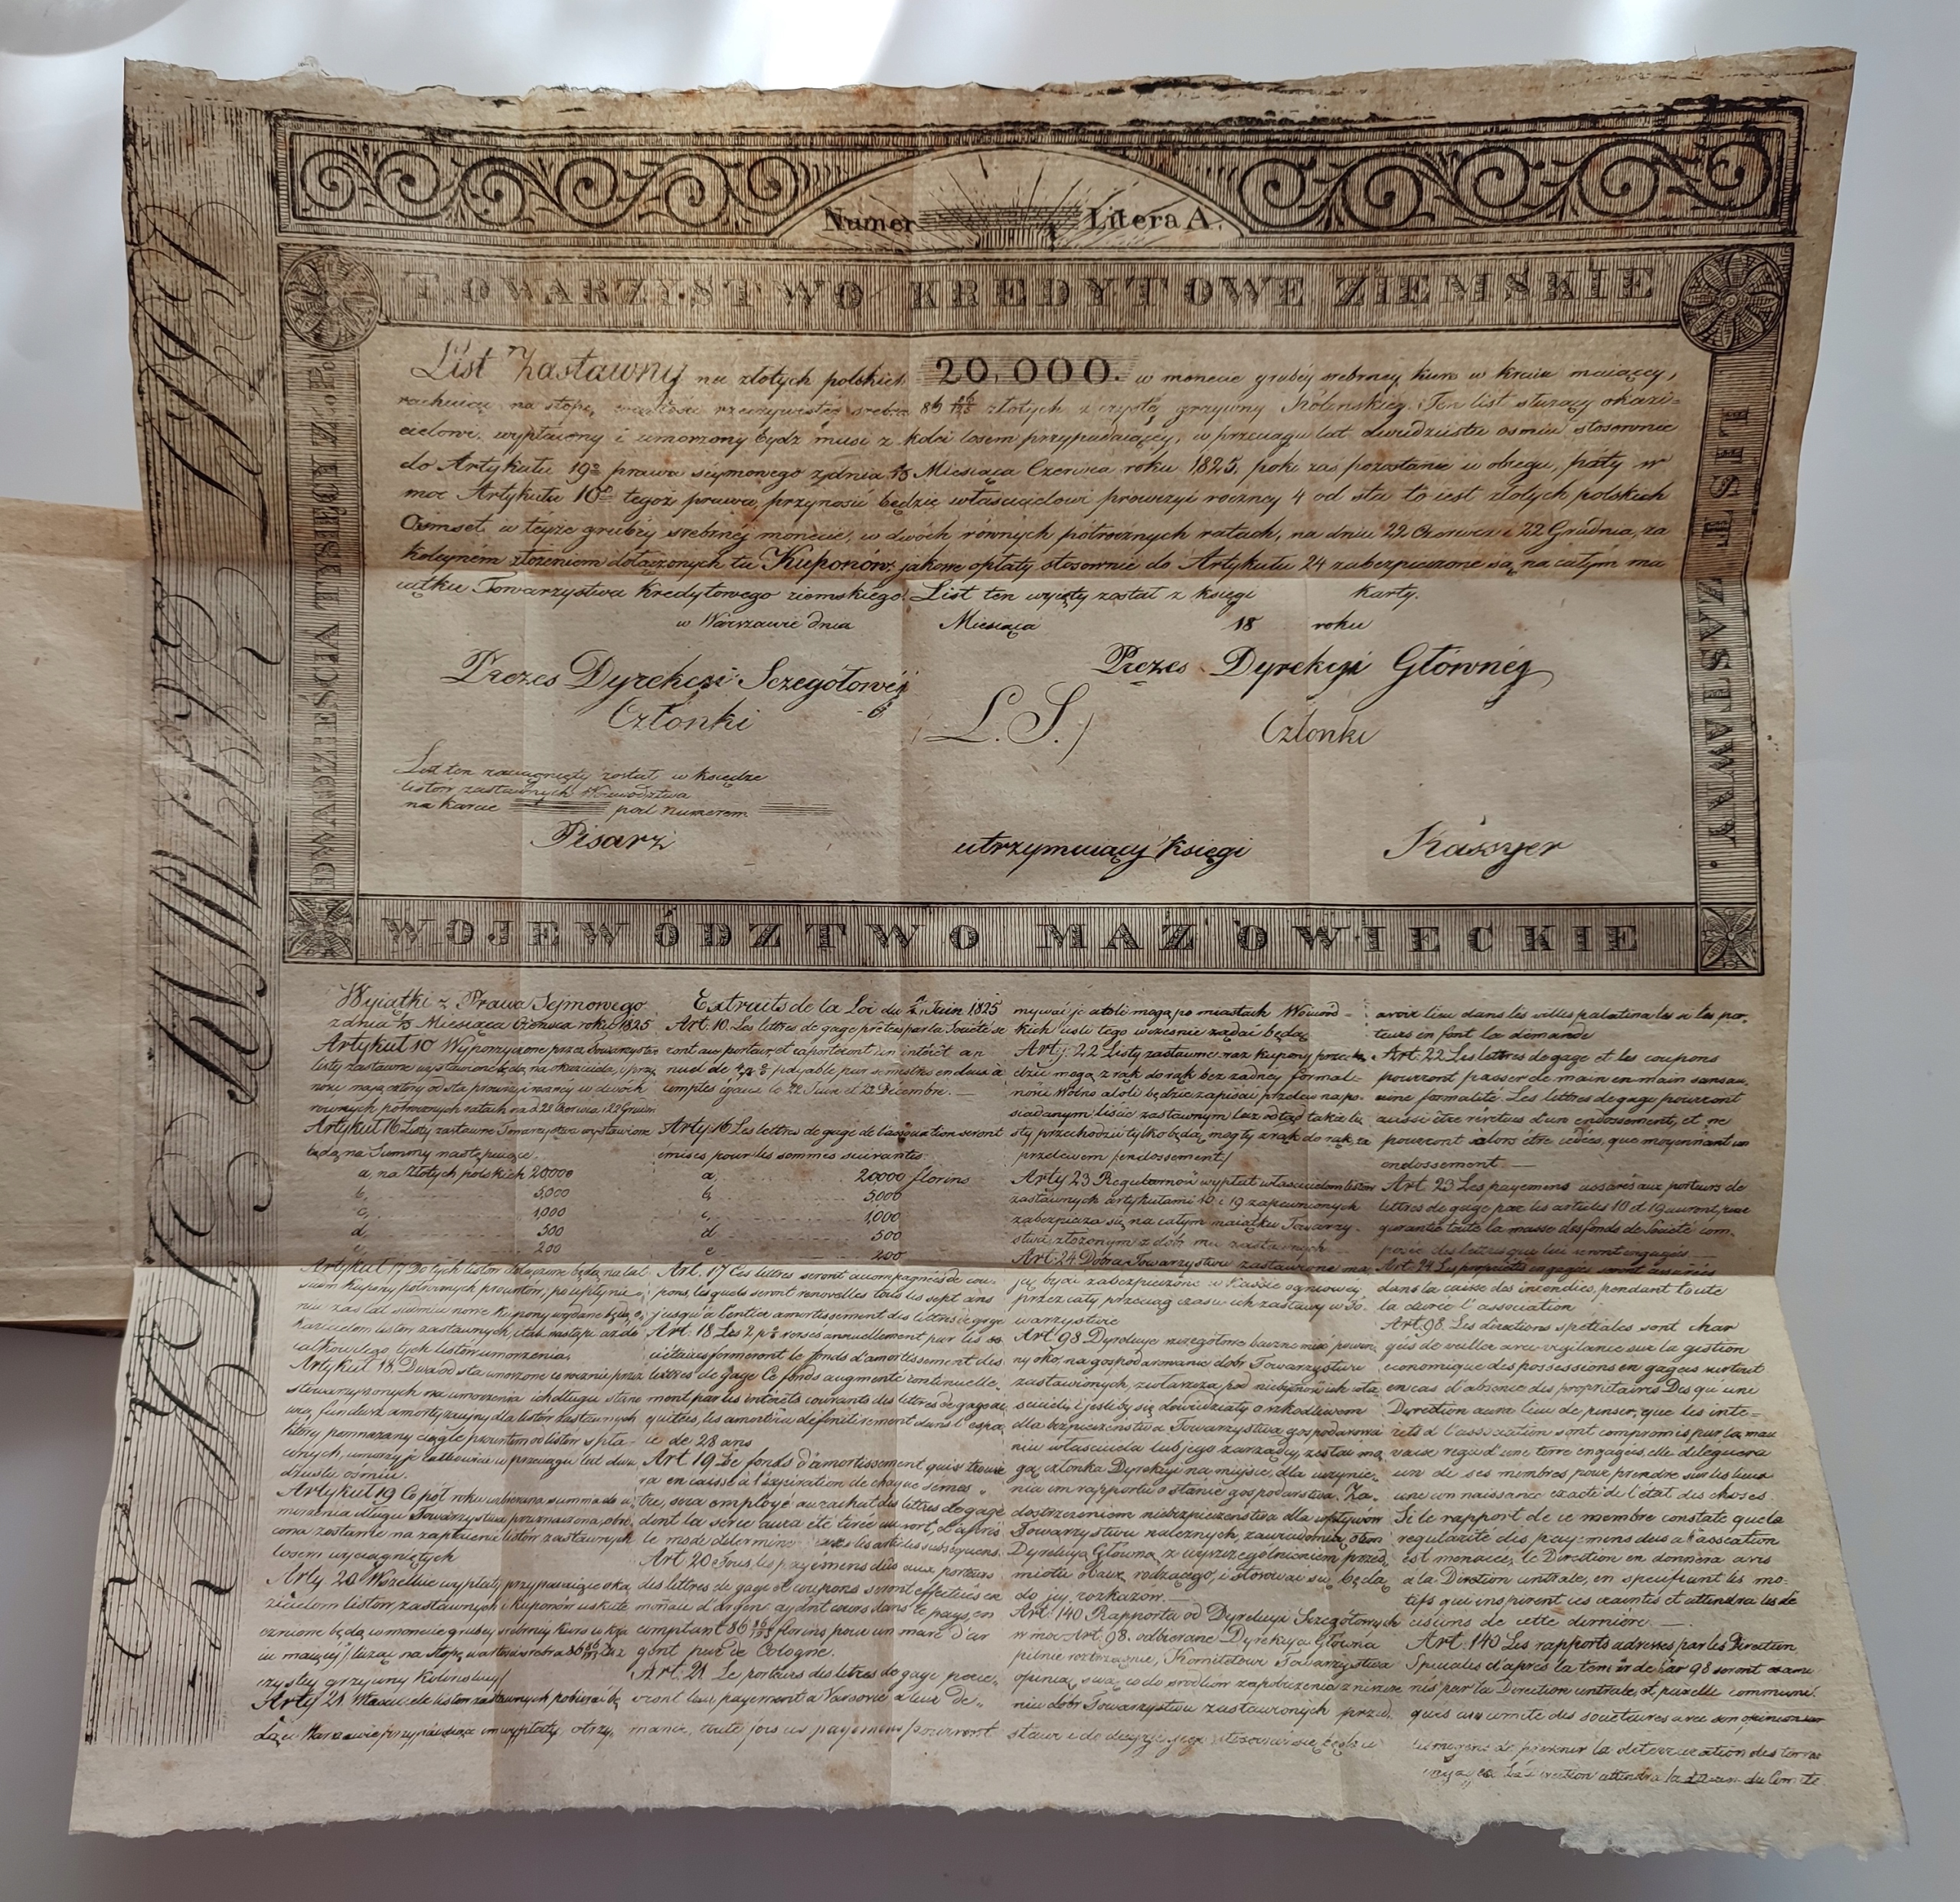 Numer Litera A.
TOWARZYSTWO KREDYTOWE ZIEMSKIE
DWADZIEŚCIA TYSIĘCY Z.P.
LIST ZASTAWNY.
List Zastawny na złotych polskich 20,000. w monecie grubey srebrney kurs w kraiu maiącey,
rachuiąc na stopę wartości rzeczywistey srebra 86 86/125 złotych z czystey grzywny Kolońskiey. Ten list służący okazi=
cielowi, wypłacony i umorzony bydź musi z kolei losem przypadaiącey, w przeciągu lat dwudziestu ośmiu stosownie
do Artykułu 19º prawa seymowego z dnia 1/13 Miesiąca Czerwca roku 1825. poki zas pozostanie w obiegu, poty w
moc Artykułu 10º tegoż prawa przynosić będzie właścicielowi prowizyi roczney 4 od sta to iest złotych polskich
Osmset, w teyże grubéy srebrnéj monecie, w dwóch równych półrocznych ratach, na dniu 22 Czerwca i 22 Grudnia, za
koleyném złożeniem dołączonych tu Kuponów; jakowe opłaty stosownie do Artykułu 24 zabezpieczone są na całym ma
iątku Towarzystwa kredytowego ziemskiego. List ten wyięty został z księgi karty.
w Warszawie dnia Miesiąca 18 roku
Prezes Dyrekcyi Sczegółowéj
Prezes Dyrekcyi Głównéj
Członki
(L. S.)
Członki
List ten zaciągnięty został w księdze
listów zastawnych Województwa
na karcie pod Numerem
Pisarz utrzymuiący księgi Kassyer
WOJEWÓDZTWO MAZOWIECKIE
Wyiątki z Prawa Sejmowego
z dnia 1/13 Miesiąca Czerwca roku 1825
Artykuł 10 Wypożyczone przez towarzystwo
listy zastawne wystawione będą na okaziciela, i przy
nosić mają cztery od sta prowizyi roczney w dwóch
równych półrocznych ratach na d. 22 Czerwca i 22 Grudnia
Artykuł 16 Listy zastawne Towarzystwa wystawione
będą na Summy następujące.
a, na złotych polskich 20000
b, 5,000
c, 1,000
d, 500
e, 200
Artykuł 17 Do tych listów dołączone będą na lat
siedm kupony półrocznych procentów, po upłynie=
niu zas lat siedmiu nowe kupony wydane będą o=
kazicielom listów zastawnych, i tak nastąpi aż do
całkowitego tych listów umorzenia.
Artykuł 18. Dwa od sta wnoszone corocznie przez
stowarzyszonych na umorzenie ich długu stano
wią fundusz amortyzacyjny dla listów zastawnych
który pomnażany ciągle procentem od listów spła=
conych, umorzy je całkowicie w przeciągu lat dwu
dziestu osmiu.
Artykuł 19 Co pół roku uzbierana summa do u=
morzenia długu Towarzystwa przeznaczona, obró
cona zostanie na zapłacenie listów zastawnych
losem wyciągniętych
Arty 20 Wszelkie wypłaty przypadaiące oka,
zicielom listów zastawnych i kuponów uskute
cznione będą w monecie grubey srebrnéy kurs w kra
iu maiącey / licząc na stopę wartości srebra 86 86/125 Zł z
czystey grzywny Kolońskiey/
Arty 21 Właściciele listów zastawnych pobierać bę
dą w Warszawie przypadaiące im wypłaty, otrzy,
Extraits de la Loi du 1/13 Juin 1825
Art. 10. Les lettres de gage prêtés par la Société se
ront au porteur, et raporteront un intérêt an
nuel de 4 p % payable par semestre en deux à
comptes égaux le 22 Juin et 22 Décembre. —
Arty: 16 Les lettres de gage de l'association seront
émises pour les sommes suivantes:
a, 20000 florins
b, 5,000
c, 1,000
d 500
e 200
Art. 17 Ces lettres seront accompagnées de cou,
pons, lesquels seront renovellés tous les sept ans
jusqu'à l'entier amortissement des lettres de gage
Art. 18. Les 2 p % versés annuellement par les so
ciétaires formeront le fonds d'amortissement des
lettres de gage Ce fonds augmenté continuelle.
ment par les intérêts courants des lettres de gage ac
quités, les amortira définitivement dans l'espa
ce de 28 ans
Art 19 Le fonds d'amortissement qui se trouve
ra en caisse à l'expiration de chaque semes =
tre, sera employé au rachat des lettres de gage
dont la série aura été tirée au sort, d'après
le mode déterminé dans les articles subséquens.
Art. 20 Tous les payemens dûs aux porteurs
des lettres de gage et coupons seront effectués en
monaie d'argent ayant cours dans le pays, en
comptant 86 86/125 florins pour un marc d'ar
gent pur de Cologne.
Art: 21. Le porteurs des lettres de gage rece=
vront leur payement a Varsovie à leur de=
mande, toute fois ces payemens pourront
mywać je atoli mogą po miastach Wojewód =
zkich ieśli tego wcześnie żądać będą
Arty: 22 Listy zastawne oraz kupony przecho
dzić mogą z rąk do rąk bez żadnéy formal=
ności Wolno atoli będzie zapisać przelew na po=
siadanym liście zastawnym lecz odtąd takie li
sty przechodzić tylko będą mogły z rąk do rąk za
przelewem /endossement/
Arty 23 Regularność wypłat właścicielom listów
zastawnych artykułami 10 i 19 zapewnionych
zabezpiecza się na całym maiątku Towarzy=
stwa złożonym z dóbr mu zastawnych
Art: 24 Dobra Towarzystwu zastawione ma
ją bydź zabezpieczone w Kassie ogniowéj
przez cały przeciąg czasu ich zastawy w To=
warzystwie
Art. 98 Dyrekcye szczegółowe baczne mieć powin
ny oko, na gospodarowanie dóbr Towarzystwu
zastawionych, zwłaszcza pod niebytność ich wła=
scicieli, jeśliby się dowiedziały o szkodliwem
dla bezpieczeństwa Towarzystwa gospodarowa
niu właściciela lub jego zarządcy, zesłać mo
gą członka Dyrekcyi na miejsce, dla uczynie=
nia im rapportu o stanie gospodarstwa. Za=
dostrzeżeniem niebezpieczeństwa dla wpływów
Towarzystwu należnych, zawiadomią o tem
Dyrekcyą Główną z wyszczególnieniem przed,
miotu obawę rodzącego, i stosować się będą
do jey rozkazów. —
Art: 140 Rapporta od Dyrekcyi Szczegółowych
w moc Art: 98. odbierane Dyrekcya Główna
pilnie roztrząśnie, i Komitetowi Towarzystwa
opinią swą co do srodków zapobieżenia zniszcze
niu dóbr Towarzystwu zastawionych przed,
stawi i do decyzyi jego stosować się będzie
avoir lieu dans les villes palatinales si les por,
teurs en font la demande
Art: 22 Les lettres de gage et les coupons
pourront passer de main en main sans au,
cune formalité. Les lettres de gage pourront
aussi être révêtus d'un endossement, et ne
pourront alors être cédées, que moyennant un
endossement —
Art. 23 Les payemens assurés aux porteurs de
lettres de gage par les articles 10 et 19 auront, pour
garantie toute la masse des fonds de Société com=
posée des lettres que lui seront engagés. —
Art. 24 Les propriétés engagées seront assurées
dans la caisse des incendies, pendant toute
la durée l'association
Art. 98. Les directions spétiales sont char
gées de veiller avec vigilance sur la gestion
économique des possessions engagées surtout
en cas d'absence des propriétaires Dès qu'une
Direction aura lieu de penser, que les inté=
rêts de l'association sont compromis par la mau
vaise régie d'une terre engagée, elle déléguera
un de ses membres pour prendre sur les lieux
une connaissance exacte de l'état des choses.
Si le rapport de ce membre constate que la
régularité des payemens dûs à l'assciation
est menacée, le Direction en donnera avis
à la Dirction centrale, en spécifiant les mo=
tifs qui inspirent ces craintes et attendra les dé
cisions de cette dernière. —
Art: 140 Les rapports adressés par les Direction
Spéciales d'après la teneur de l'ar 98 seront exami
nés par la Direction centrale, et par elle communi.
qués au comité des sociétaires avec son opinion sur
les moyens de prévenir la détérioration des terres
engagées. La Direction attendra la décision du Comité